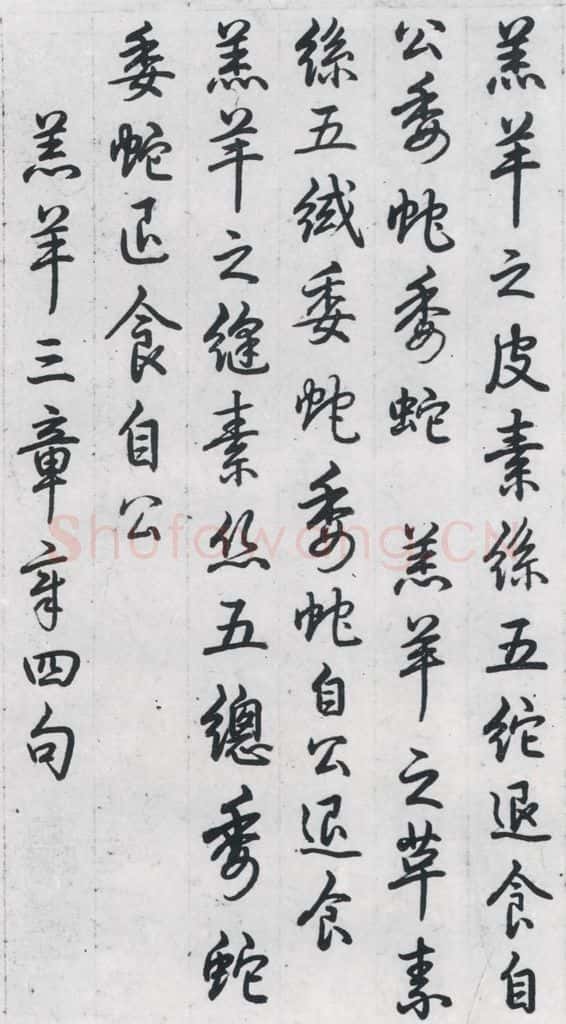 羔羊之皮素絲五紽退食自
公委蛇委蛇 羔羊之革素
絲五緎委蛇委蛇自公退食
羔羊之縫素絲五總委蛇
委蛇退食自公
羔羊三章章四句
Shufawang.CN